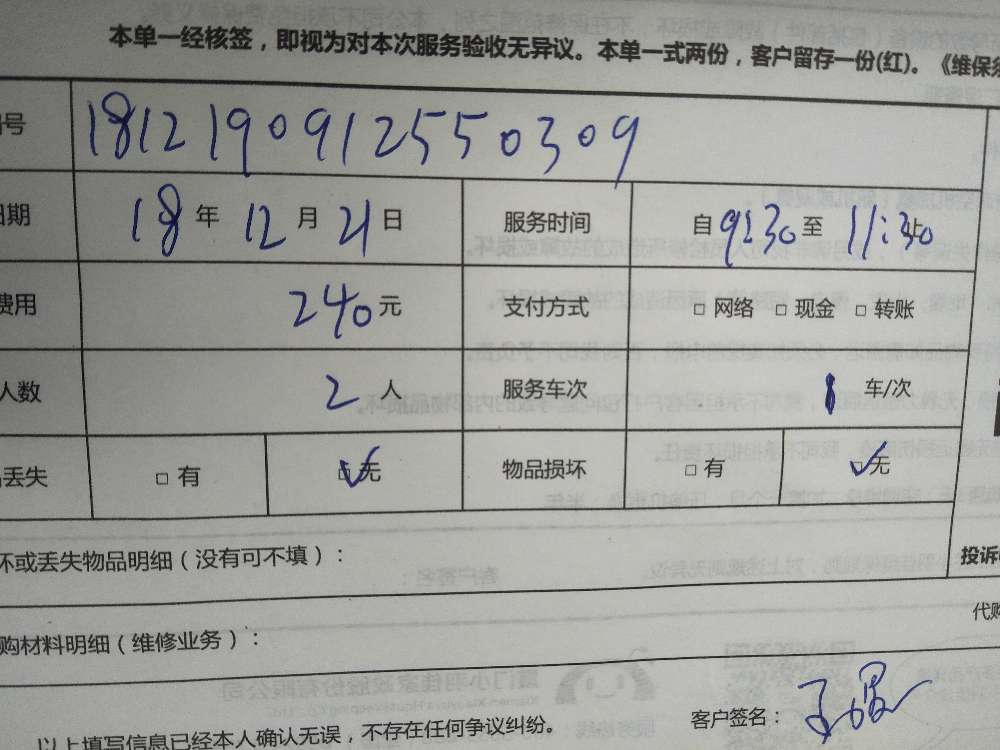 本单一经核签，即视为对本次服务验收无异议。本单一式两份，客户留存一份(红)。《维保须
号 1812190912550309
日期 18 年 12 月 21 日 服务时间 自 9:30 至 11:30
费用 240 元 支付方式 □ 网络 □ 现金 □ 转账
人数 2 人 服务车次 1 车/次
丢失 □ 有 ☑ 无 物品损坏 □ 有 ☑ 无
坏或丢失物品明细（没有可不填）：
投诉
购材料明细（维修业务）：
代购
客户签名：
以上填写信息已经本人确认无误，不存在任何争议纠纷。